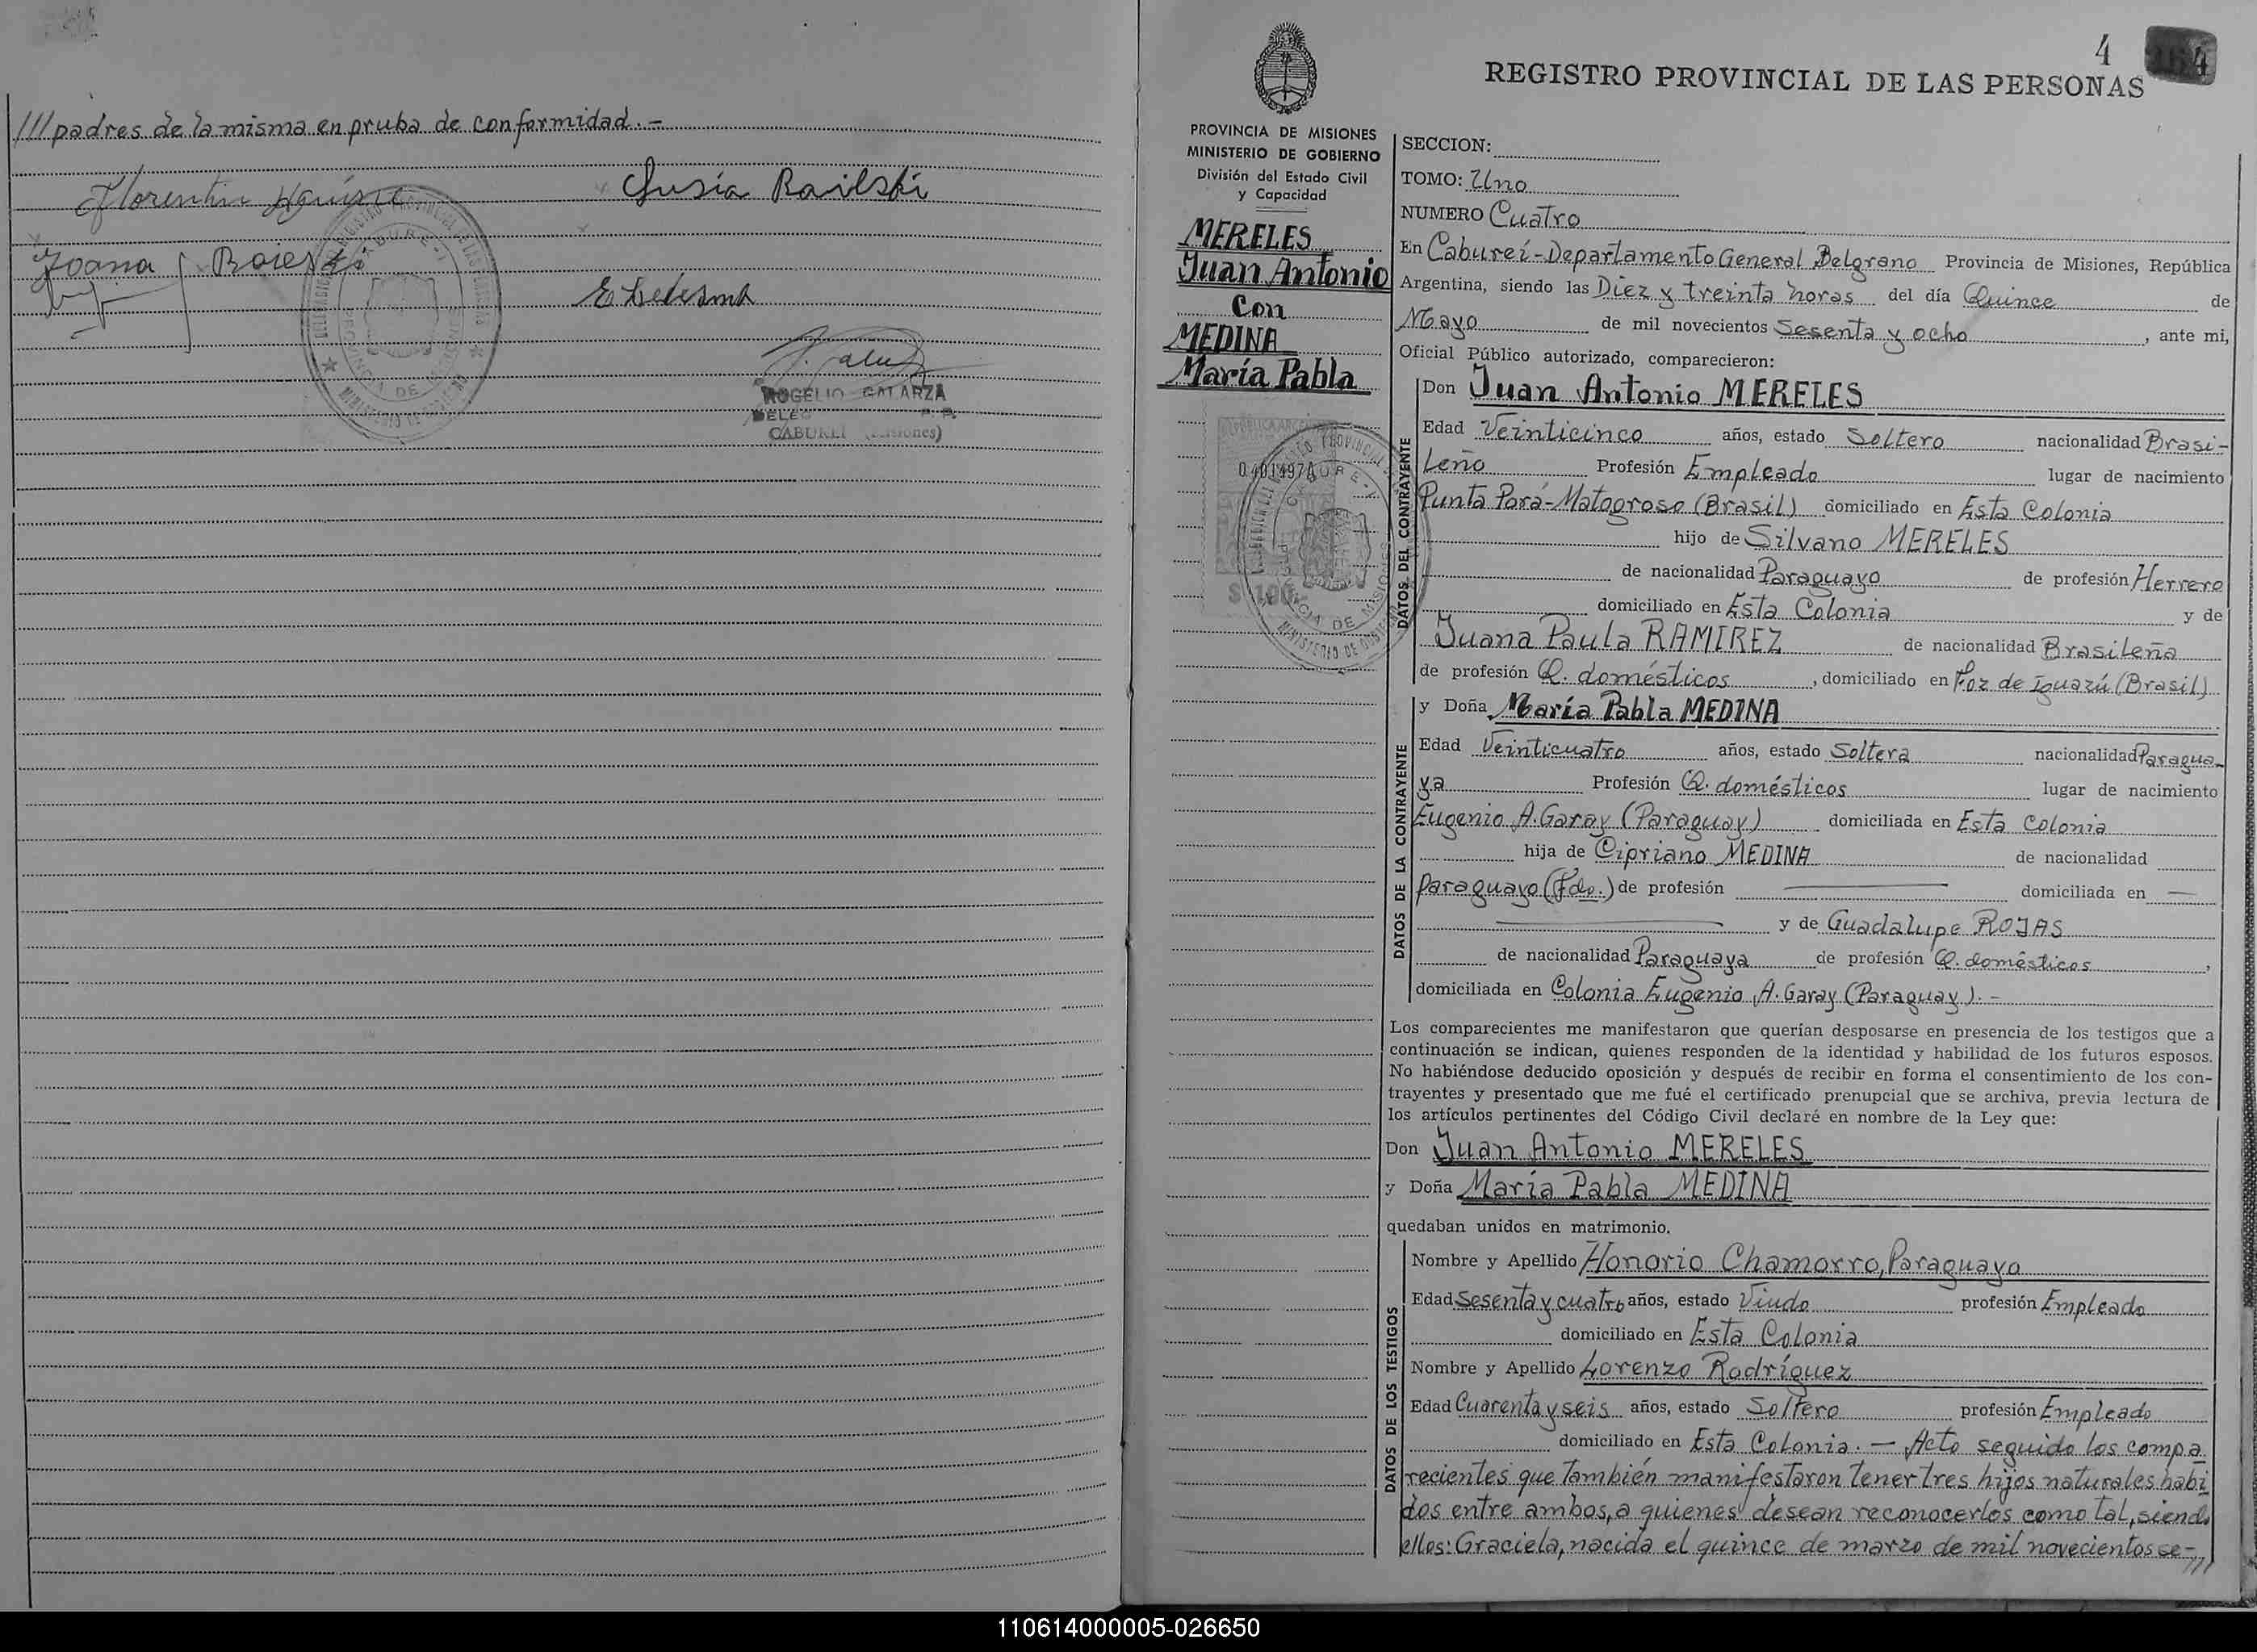 ///padres de la misma en pruba de conformidad.-
Florentin
Joana
ROGELIO GALARZA
DELEG
CABUREI (Misiones)
4
4
REGISTRO PROVINCIAL DE LAS PERSONAS
PROVINCIA DE MISIONES
MINISTERIO DE GOBIERNO
División del Estado Civil
y Capacidad
MERELES
Juan Antonio
Con
MEDINA
María Pabla
$ 100
SECCION:
TOMO: Uno
NUMERO Cuatro
En Cabureí-Departamento General Belgrano Provincia de Misiones, República
Argentina, siendo las Diez y treinta horas del día Quince de
Mayo de mil novecientos Sesenta y ocho, ante mi,
Oficial Público autorizado, comparecieron:
DATOS DEL CONTRAYENTE
Don Juan Antonio MERELES
Edad Veinticinco años, estado Soltero nacionalidad Brasi-
leño Profesión Empleado lugar de nacimiento
Punta Porá-Matogroso (Brasil) domiciliado en Esta Colonia
hijo de Silvano MERELES
de nacionalidad Paraguayo de profesión Herrero
domiciliado en Esta Colonia y de
Juana Paula RAMIREZ de nacionalidad Brasileña
de profesión Q. domésticos, domiciliado en Foz de Iguazú (Brasil)
DATOS DE LA CONTRAYENTE
y Doña María Pabla MEDINA
Edad Veinticuatro años, estado Soltera nacionalidad Paragua-
ya Profesión Q. domésticos lugar de nacimiento
Eugenio A. Garay (Paraguay) domiciliada en Esta Colonia
hija de Cipriano MEDINA de nacionalidad
Paraguayo (Fdo.) de profesión — domiciliada en —
— y de Guadalupe ROJAS
de nacionalidad Paraguaya de profesión Q. domésticos,
domiciliada en Colonia Eugenio A. Garay (Paraguay).-
Los comparecientes me manifestaron que querían desposarse en presencia de los testigos que a
continuación se indican, quienes responden de la identidad y habilidad de los futuros esposos.
No habiéndose deducido oposición y después de recibir en forma el consentimiento de los con-
trayentes y presentado que me fué el certificado prenupcial que se archiva, previa lectura de
los artículos pertinentes del Código Civil declaré en nombre de la Ley que:
Don Juan Antonio MERELES
y Doña María Pabla MEDINA
quedaban unidos en matrimonio.
DATOS DE LOS TESTIGOS
Nombre y Apellido Honorio Chamorro, Paraguayo
Edad Sesenta y cuatro años, estado Viudo profesión Empleado
domiciliado en Esta Colonia
Nombre y Apellido Lorenzo Rodríguez
Edad Cuarenta y seis años, estado Soltero profesión Empleado
domiciliado en Esta Colonia.— Acto seguido los compa
recientes que también manifestaron tener tres hijos naturales habi
dos entre ambos, a quienes desean reconocerlos como tal, siendo
ellos: Graciela, nacida el quince de marzo de mil novecientos se-///
110614000005-026650